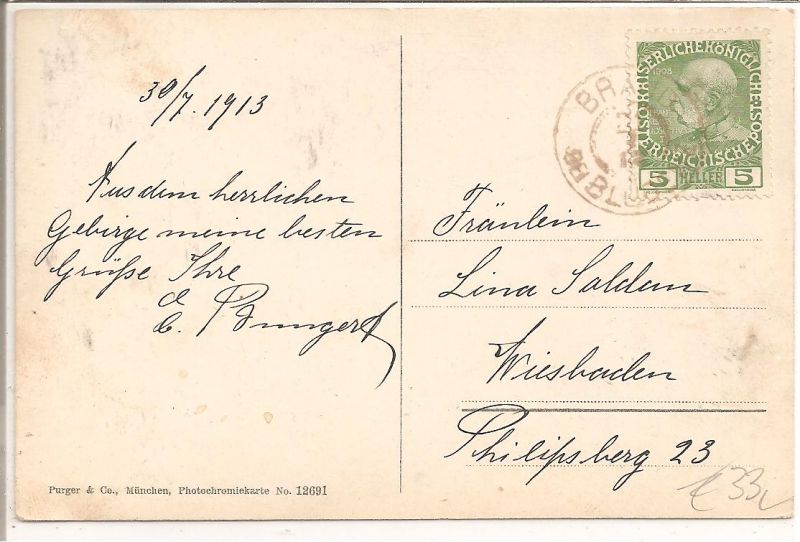 30/7. 1913
Aus dem herrlichen
Gebirge meine besten
Grüße Ihre
C. Bungert
Purger & Co., München, Photochromiekarte No. 12691
KAISERLICHE KÖNIGLICHE
ÖSTERREICHISCHE POST
1908
5 HELLER 5
BLUDENZ
Fräulein
Lina Saldan
Wiesbaden
Philipsberg 23